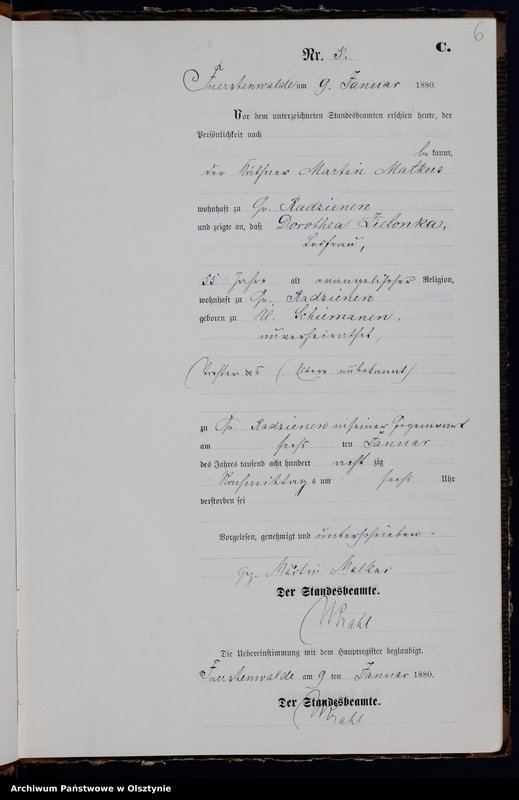 6
C.
Nr. 5.
Fuerstenwalde am 9. Januar 1880.
Vor dem unterzeichneten Standesbeamten erschien heute, der
Persönlichkeit nach
bekannt,
der Käthner Martin Malkus
wohnhaft zu Gr. Radzienen
und zeigte an, daß Dorothea Zielonka,
Losfrau,
55 Jahre alt evangelischer Religion,
wohnhaft zu Gr. Radzienen
geboren zu Kl. Schiemanen,
unverheirathet,
Tochter des (Eltern unbekannt)
zu Gr. Radzienen in seiner Gegenwart
am sechs ten Januar
des Jahres tausend acht hundert acht zig
Nachmittags um sechs Uhr
verstorben sei
Vorgelesen, genehmigt und unterschrieben.
gez. Martin Malkus
Der Standesbeamte.
Die Uebereinstimmung mit dem Hauptregister beglaubigt.
Fuerstenwalde am 9 ten Januar 1880.
Der Standesbeamte.
Archiwum Państwowe w Olsztynie